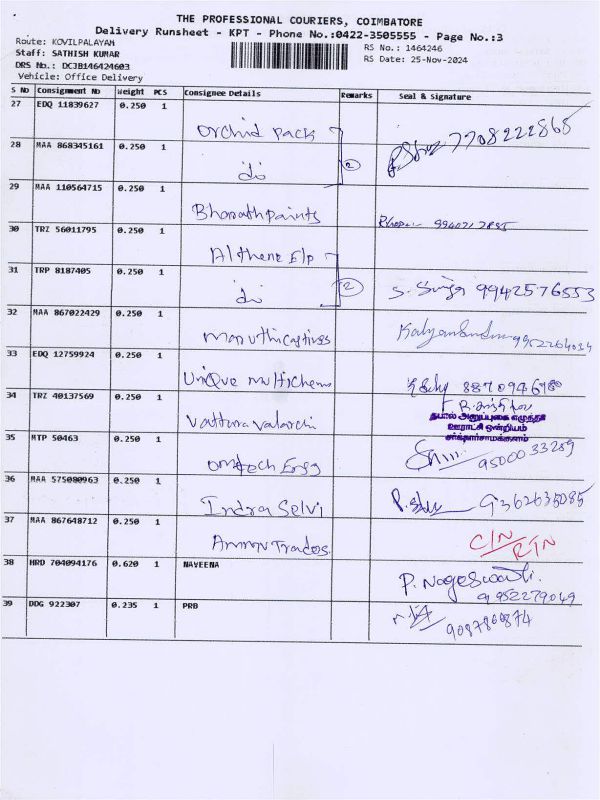 THE PROFESSIONAL COURIERS, COIMBATORE
Delivery Runsheet - KPT - Phone No.:0422-3505555 - Page No.:3
Route: KOVILPALAYAM
Staff: SATHISH KUMAR
DRS No.: DCJB146424603
Vehicle: Office Delivery
RS No.: 1464246
RS Date: 25-Nov-2024
S No Consignment No Weight PCS Consignee Details Remarks Seal & Signature
27 EDQ 11839627 0.250 1 Orchid Pack 7708222865
28 MAA 868345161 0.250 1 do 2
29 MAA 110564715 0.250 1 Bharath Paints
30 TRZ 56011795 0.250 1 Althene Elp
31 TRP 8187405 0.250 1 do 2 9942576553
32 MAA 867022429 0.250 1 Maruthi Castings
33 EDQ 12759924 0.250 1 Unique Multichems
34 TRZ 40137569 0.250 1 Vattara Valarchi
தபால் அனுப்புகை எழுத்தர்
ஊராட்சி ஒன்றியம்
சர்க்கார்சாமக்குளம்
35 MTP 50463 0.250 1 Omtech Engg 9500033289
36 MAA 575080963 0.250 1 Indra Selvi 9362635085
37 MAA 867648712 0.250 1 C/N RTN
38 HRD 704094176 0.620 1 NAVEENA P. Nageswari.
39 DDG 922307 0.235 1 PRB 9087860874